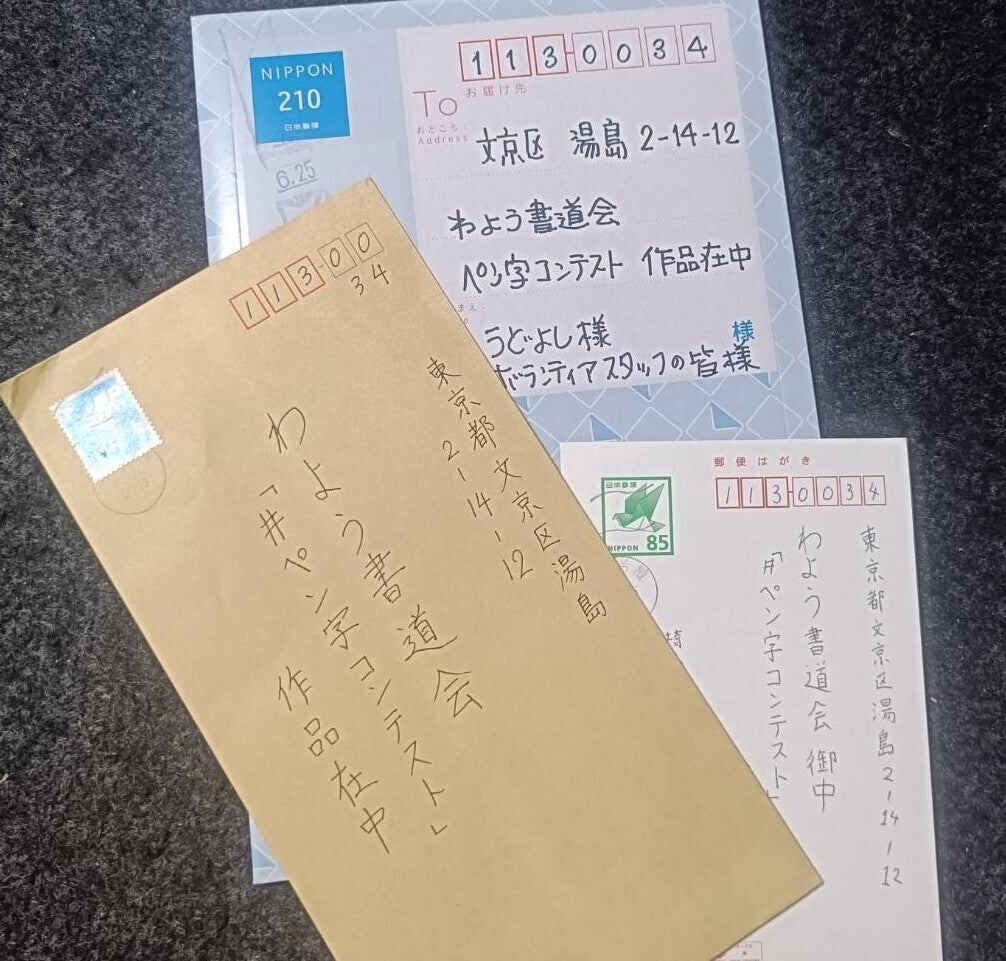 NIPPON
210
日本郵便
6.25
113-0034
To
お届け先
おところ：
Address
文京区 湯島 2-14-12
わよう書道会
ペン字コンテスト 作品在中
うどよし様
様
ボランティアスタッフの皆様
113-00
34
東京都文京区湯島
2-14-12
わよう書道会
「#ペン字コンテスト」
作品在中
郵便はがき
日本郵便
NIPPON 85
113-0034
東京都文京区湯島2-14-12
わよう書道会 御中
「#ペン字コンテスト」
埼